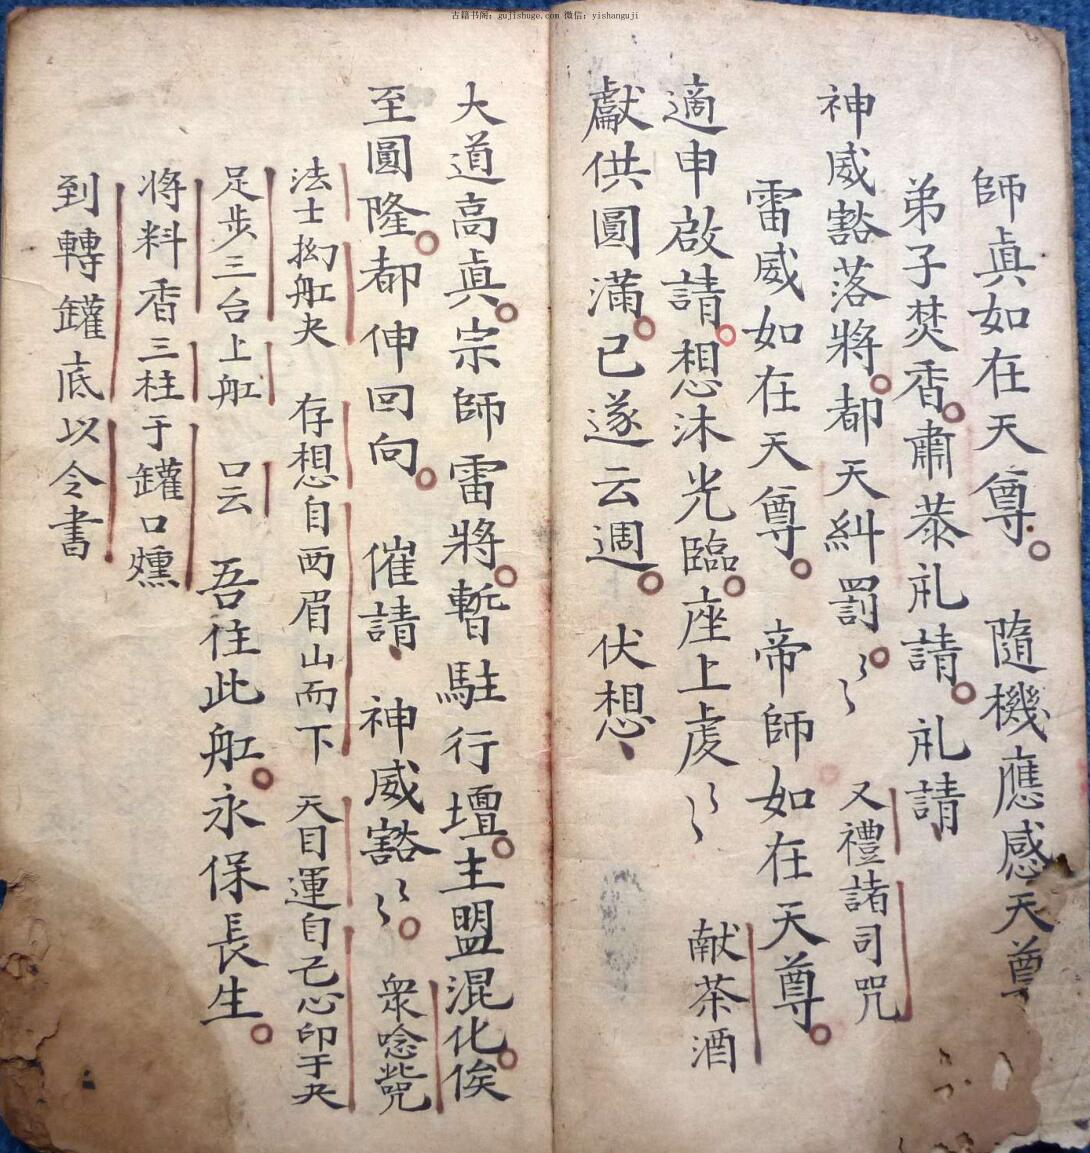 古籍书阁：gujishuge.com 微信：yishanguji
師眞如在天尊 隨機應感天尊
弟子焚香肅恭礼請礼請
神威豁落將都天糾罰〻 又禮諸司咒
雷威如在天尊 帝師如在天尊
適申啟請想沐光臨座上虔〻 献茶酒
獻供圓滿已遂云週 伏想
大道高眞宗師雷將暫駐行壇主盟混化俟
至圓隆都伸回向 催請 神威豁〻 衆唸
法士 舡夬 存想自西眉山而下 天目運自己心印于夬
足步三台上舡 口云 吾往此舡永保長生
將料香三柱于罐口燻
到轉罐底以令書